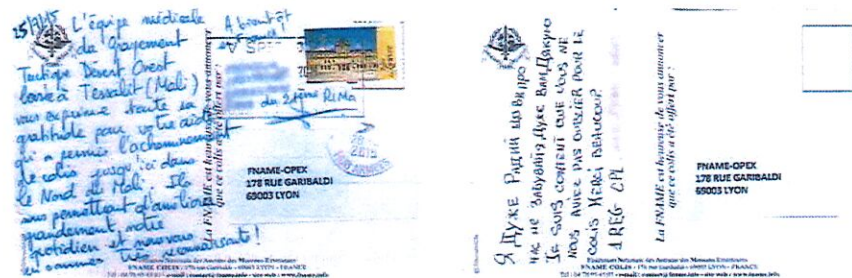 25/7/15 L'équipe médicale
du Groupement
Tactique Désert Ouest
basée à Tessalit (Mali)
vous exprime toute sa
gratitude pour votre aide
qui a permis l'acheminement
de colis jusqu'ici dans
le Nord du Mali. Ils
nous permettent d'améliorer
grandement notre
quotidien et nous vous
en sommes très reconnaissants!
A bientôt
en France!
du 21ème RIMa
La FNAME est heureuse de vous annoncer
que ce colis a été offert par :
FNAME-OPEX
178 RUE GARIBALDI
69003 LYON
Fédération Nationale des Anciens des Missions Extérieures
FNAME COLIS - 178 rue Garibaldi - 69003 LYON - FRANCE
Я ДУЖЕ РАДИЙ ЩО ВИ ПРО
НАС НЕ ЗАБУВАЛИ ДУЖЕ ВАМ ДАКУЮ
JE SUIS CONTENT QUE VOUS NE
NOUS AVIEZ PAS OUBLIER POUR LE
COLIS MERCI BEAUCOUP.
1 REG CPL
La FNAME est heureuse de vous annoncer
que ce colis a été offert par :
FNAME-OPEX
178 RUE GARIBALDI
69003 LYON
Fédération Nationale des Anciens des Missions Extérieures
FNAME COLIS - 178 rue Garibaldi - 69003 LYON - FRANCE